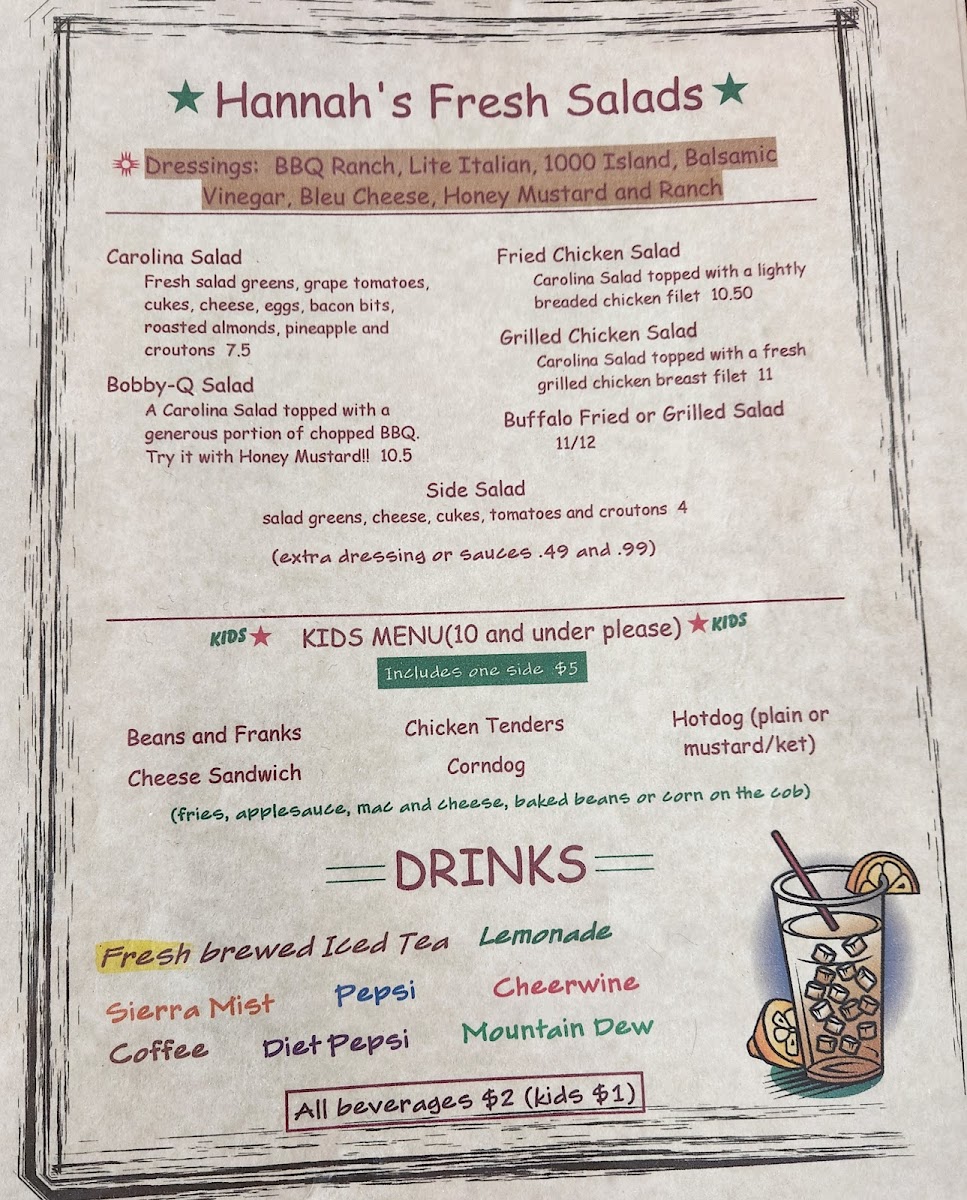 Hannah's Fresh Salads
Dressings: BBQ Ranch, Lite Italian, 1000 Island, Balsamic
Vinegar, Bleu Cheese, Honey Mustard and Ranch
Carolina Salad
Fresh salad greens, grape tomatoes,
cukes, cheese, eggs, bacon bits,
roasted almonds, pineapple and
croutons 7.5
Bobby-Q Salad
A Carolina Salad topped with a
generous portion of chopped BBQ.
Try it with Honey Mustard!! 10.5
Fried Chicken Salad
Carolina Salad topped with a lightly
breaded chicken filet 10.50
Grilled Chicken Salad
Carolina Salad topped with a fresh
grilled chicken breast filet 11
Buffalo Fried or Grilled Salad
11/12
Side Salad
salad greens, cheese, cukes, tomatoes and croutons 4
(extra dressing or sauces .49 and .99)
KIDS KIDS MENU(10 and under please) KIDS
Includes one side $5
Beans and Franks
Cheese Sandwich
Chicken Tenders
Corndog
Hotdog (plain or
mustard/ket)
(fries, applesauce, mac and cheese, baked beans or corn on the cob)
DRINKS
Fresh brewed Iced Tea Lemonade
Sierra Mist Pepsi Cheerwine
Coffee Diet Pepsi Mountain Dew
All beverages $2 (kids $1)